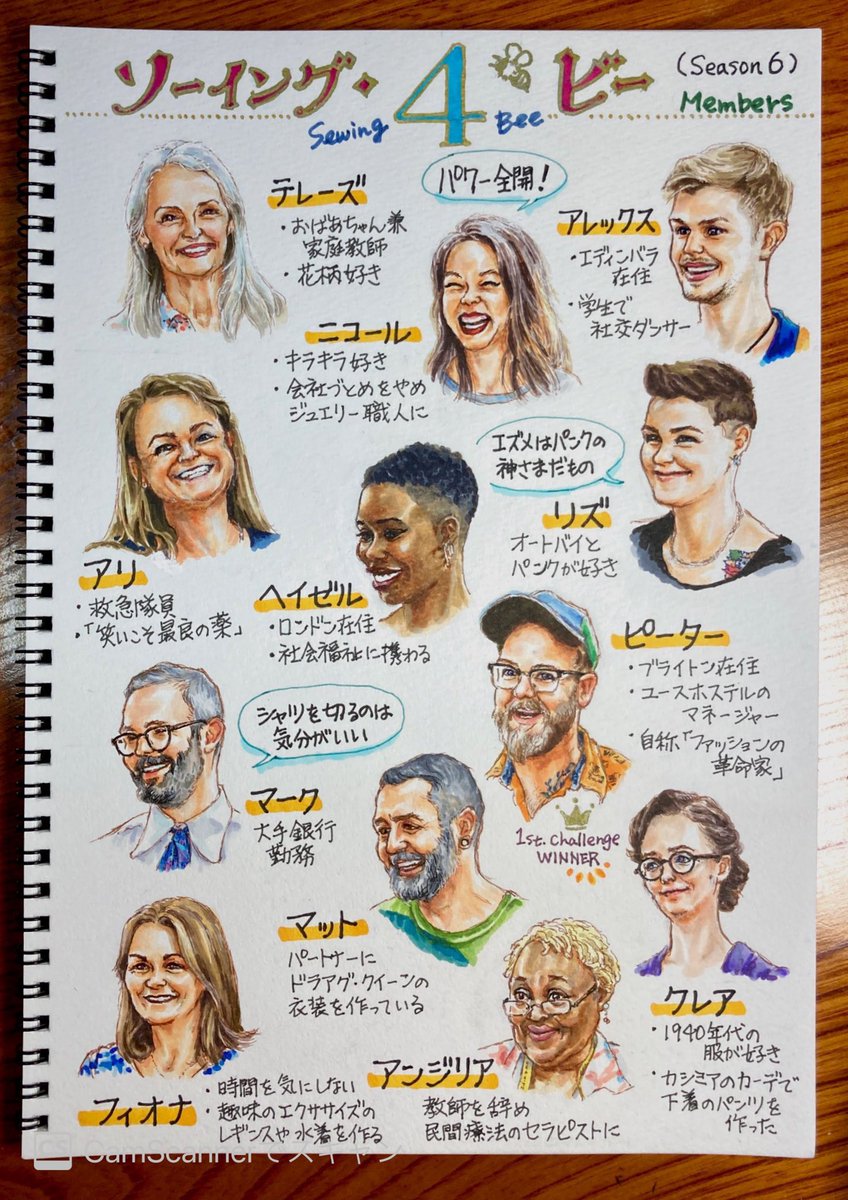 ソーイング・4ビー
(Season 6)
Sewing Bee
Members
テレーズ
・おばあちゃん兼
家庭教師
・花柄好き
パワー全開!
アレックス
・エディンバラ
在住
・学生で
社交ダンサー
ニコール
・キラキラ好き
・会社づとめをやめ
ジュエリー職人に
エズメはパンクの
神さまだもの
リズ
オートバイと
パンクが好き
アリ
・救急隊員
・「笑いこそ最良の薬」
ヘイゼル
・ロンドン在住
・社会福祉に携わる
ピーター
・ブライトン在住
・ユースホステルの
マネージャー
・自称「ファッションの
革命家」
シャツを切るのは
気分がいい
マーク
大手銀行
勤務
1st. challenge
WINNER
マット
パートナーに
ドラァグ・クイーンの
衣装を作っている
クレア
・1940年代の
服が好き
・カシミアのカーデで
下着のパンツを
作った
フィオナ
・時間を気にしない
・趣味のエクササイズの
レギンスや水着を作る
アンジリア
教師を辞め
民間療法のセラピストに
CS CamScannerでスキャン